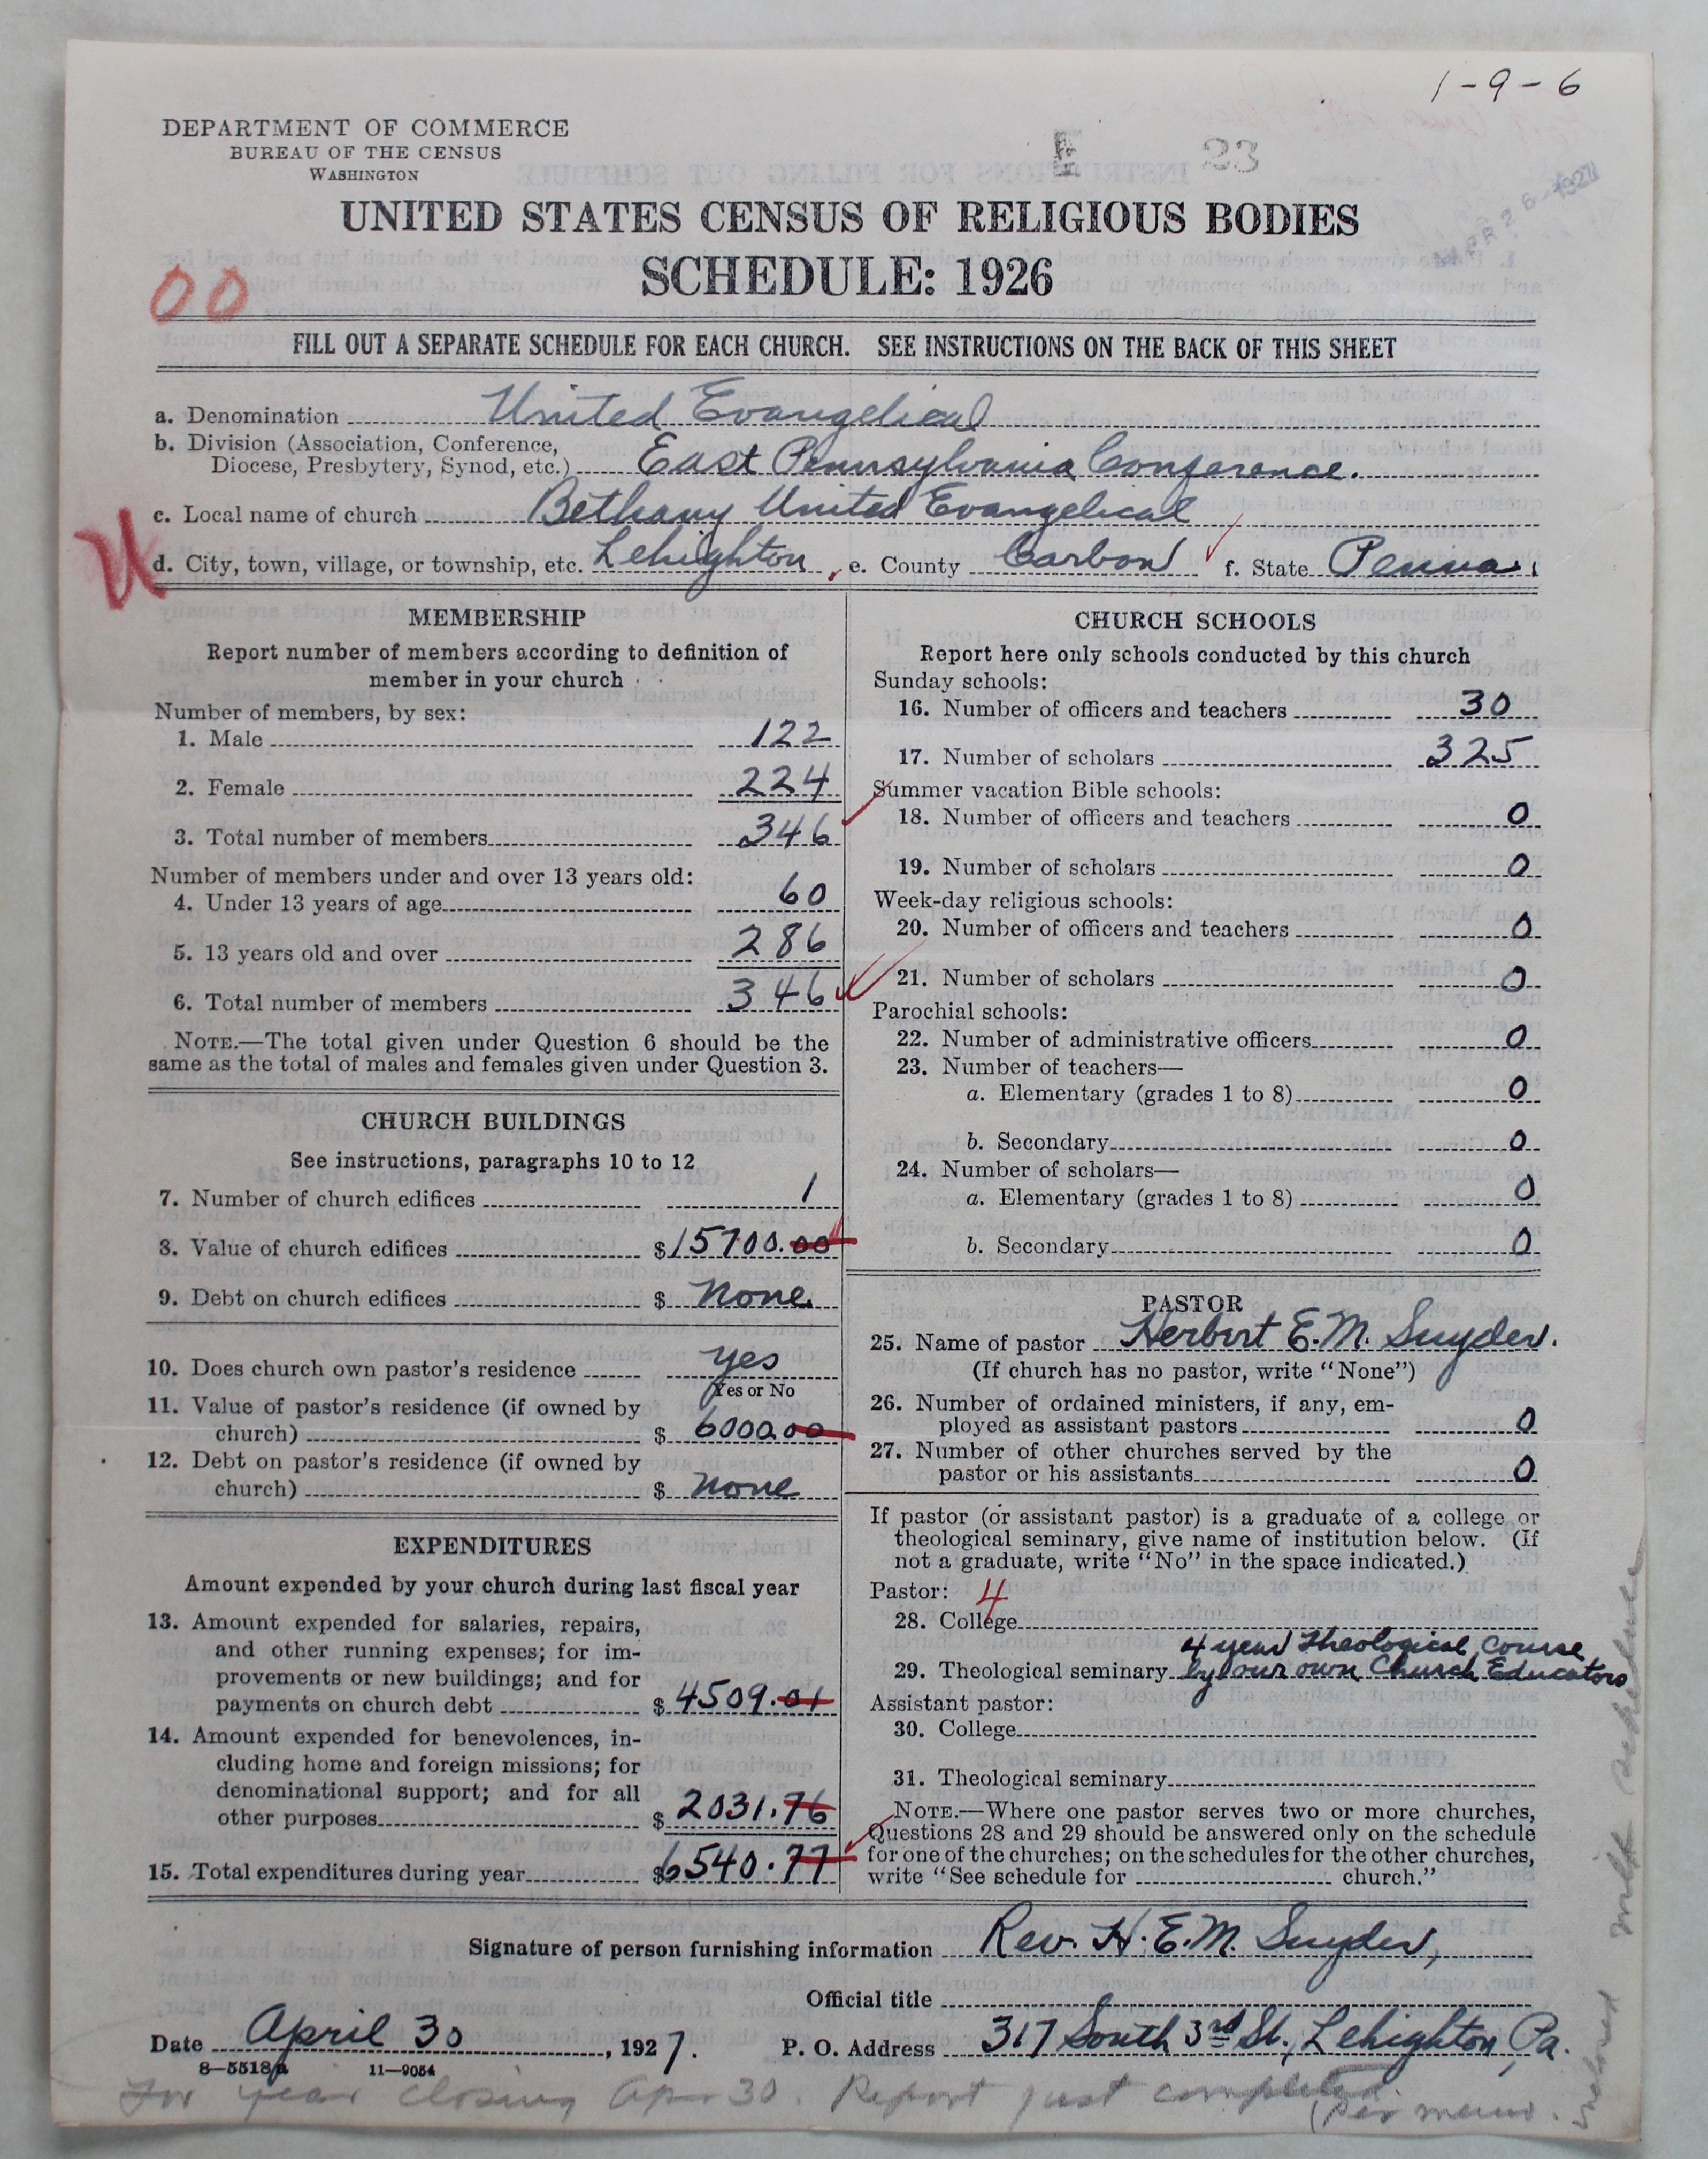 1-9-6
DEPARTMENT OF COMMERCE
BUREAU OF THE CENSUS
WASHINGTON
E 23
APR 26 1927
UNITED STATES CENSUS OF RELIGIOUS BODIES
SCHEDULE: 1926
00
FILL OUT A SEPARATE SCHEDULE FOR EACH CHURCH. SEE INSTRUCTIONS ON THE BACK OF THIS SHEET
a. Denomination United Evangelical
b. Division (Association, Conference,
Diocese, Presbytery, Synod, etc.) East Pennsylvania Conference.
c. Local name of church Bethany United Evangelical
d. City, town, village, or township, etc. Lehighton, e. County Carbon f. State Penna.
MEMBERSHIP
Report number of members according to definition of
member in your church
Number of members, by sex:
1. Male 122
2. Female 224
3. Total number of members 346
Number of members under and over 13 years old:
4. Under 13 years of age 60
5. 13 years old and over 286
6. Total number of members 346
NOTE.—The total given under Question 6 should be the
same as the total of males and females given under Question 3.
CHURCH BUILDINGS
See instructions, paragraphs 10 to 12
7. Number of church edifices 1
8. Value of church edifices $15700.00
9. Debt on church edifices $ None.
10. Does church own pastor's residence yes
Yes or No
11. Value of pastor's residence (if owned by
church) $ 6000.00
12. Debt on pastor's residence (if owned by
church) $ none
EXPENDITURES
Amount expended by your church during last fiscal year
13. Amount expended for salaries, repairs,
and other running expenses; for im-
provements or new buildings; and for
payments on church debt $4509.01
14. Amount expended for benevolences, in-
cluding home and foreign missions; for
denominational support; and for all
other purposes $ 2031.76
15. Total expenditures during year $6540.77
CHURCH SCHOOLS
Report here only schools conducted by this church
Sunday schools:
16. Number of officers and teachers 30
17. Number of scholars 325
Summer vacation Bible schools:
18. Number of officers and teachers 0
19. Number of scholars 0
Week-day religious schools:
20. Number of officers and teachers 0
21. Number of scholars 0
Parochial schools:
22. Number of administrative officers 0
23. Number of teachers—
a. Elementary (grades 1 to 8) 0
b. Secondary 0
24. Number of scholars—
a. Elementary (grades 1 to 8) 0
b. Secondary 0
PASTOR
25. Name of pastor Herbert E. M. Snyder.
(If church has no pastor, write "None")
26. Number of ordained ministers, if any, em-
ployed as assistant pastors 0
27. Number of other churches served by the
pastor or his assistants 0
If pastor (or assistant pastor) is a graduate of a college or
theological seminary, give name of institution below. (If
not a graduate, write "No" in the space indicated.)
Pastor: 4
28. College
4 year Theological Course
29. Theological seminary by our own Church Educators
Assistant pastor:
30. College
31. Theological seminary
NOTE.—Where one pastor serves two or more churches,
Questions 28 and 29 should be answered only on the schedule
for one of the churches; on the schedules for the other churches,
write "See schedule for church."
Signature of person furnishing information Rev. H. E. M. Snyder,
Official title
Date April 30, 1927. P. O. Address 317 South 3rd St., Lehighton, Pa.
8-5518a 11-9054
For year closing Apr 30. Report just completed.
(per memo.
enclosed with schedule